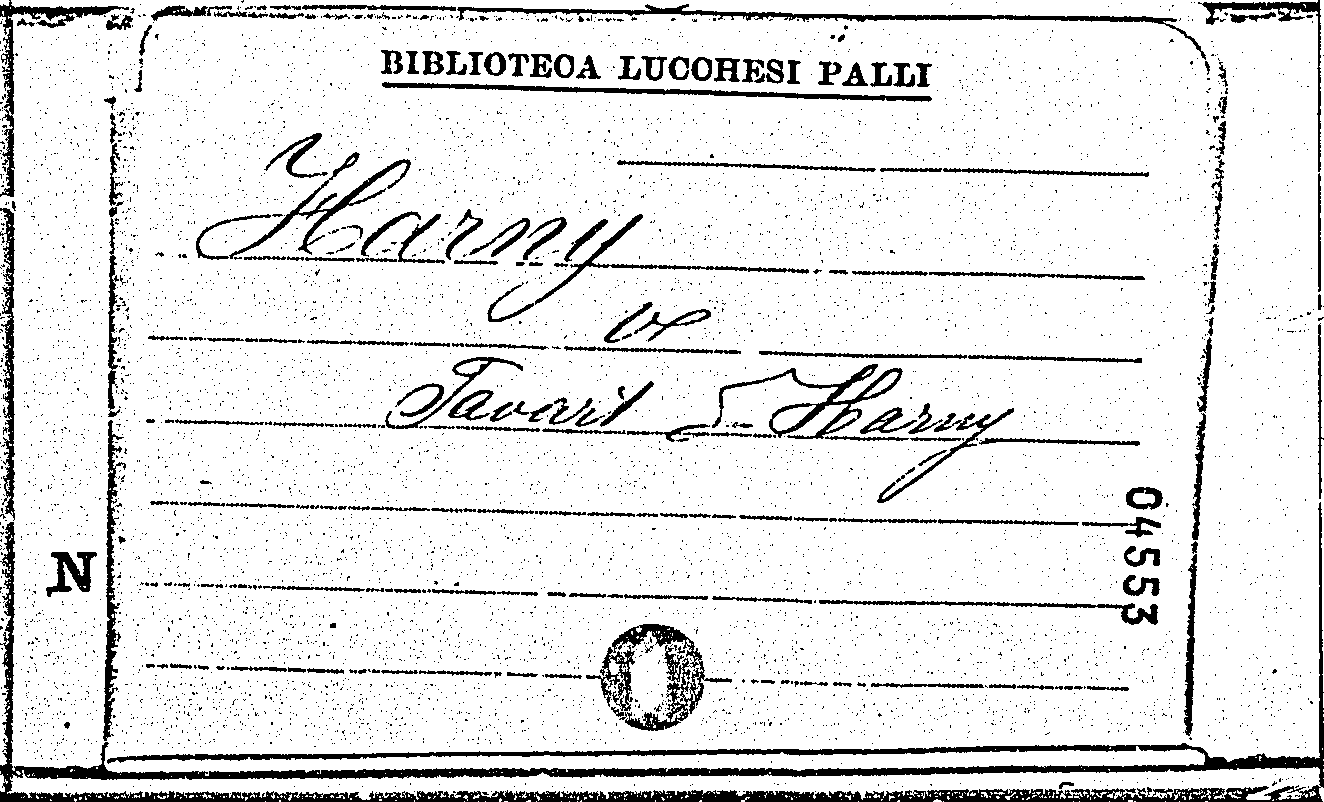 BIBLIOTECA LUCCHESI PALLI
Harny
ve
Favart & Harny
04553
N